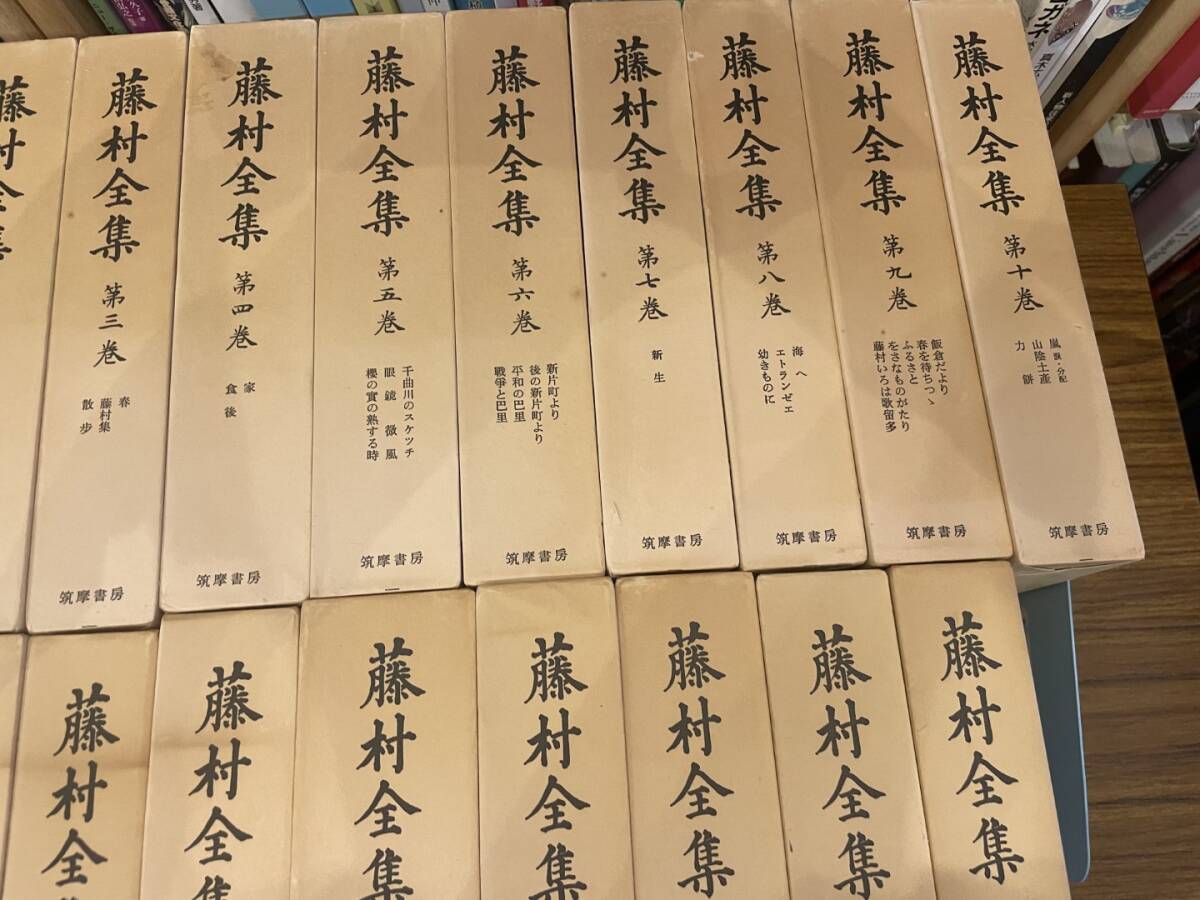 藤村全集
藤村全集 第三巻
春
藤村集
散歩
筑摩書房
藤村全集 第四巻
家
食後
筑摩書房
藤村全集 第五巻
千曲川のスケッチ
眼鏡 微風
櫻の實の熟する時
筑摩書房
藤村全集 第六巻
新片町より
後の新片町より
平和の巴里
戰爭と巴里
筑摩書房
藤村全集 第七巻
新生
筑摩書房
藤村全集 第八巻
海へ
エトランゼエ
幼きものに
筑摩書房
藤村全集 第九巻
飯倉だより
春を待ちつゝ
ふるさと
をさなものがたり
藤村いろは歌留多
筑摩書房
藤村全集 第十巻
嵐 涙・分配
山陰土産
力餅
筑摩書房
藤村全集
藤村全集
藤村全集
藤村全集
藤村全集
藤村全集
藤村全集